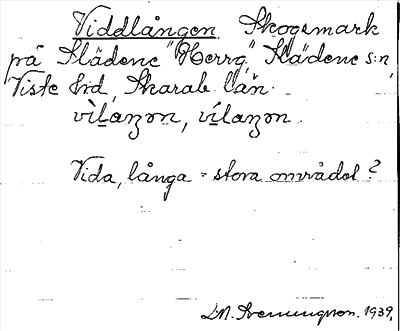 Viddlången Skogsmark
på Slädene "Herrg." Slädene s:n,
Viste hrd, Skarab. län.
vìlaŋən, vílaŋən.
Vida, långa = stora området?
D.N. Svenningson. 1939.